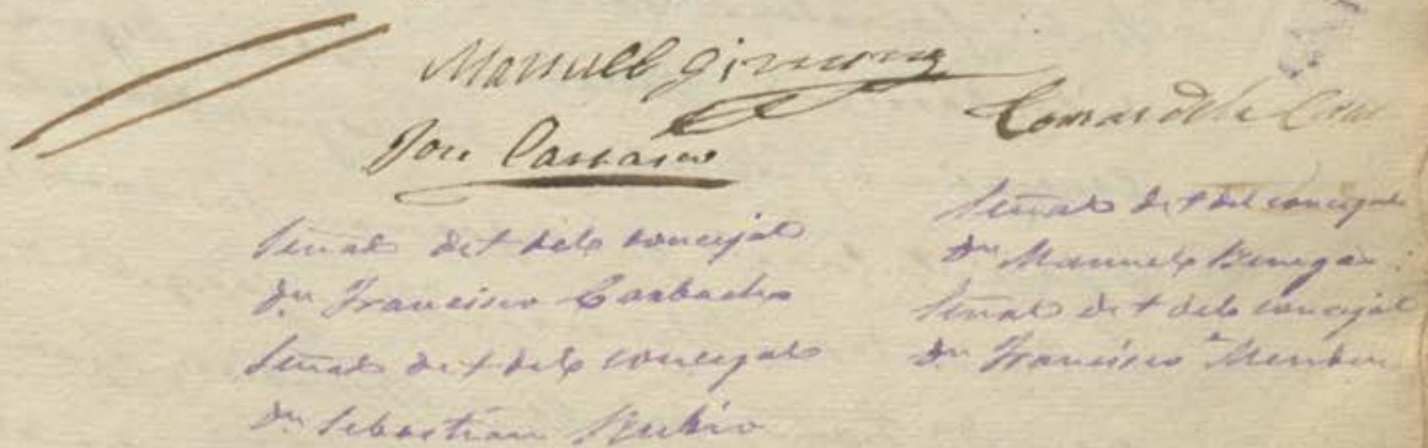 Manuel Gimenez
Jose Carrasco
Tomas de la
Señal de + del concejal
Dn Francisco Carbacho
Señal de + del concejal
Dn Sebastian Rubio
Señal de + del concejal
Dn Manuel
Señal de + del concejal
Dn Francisco